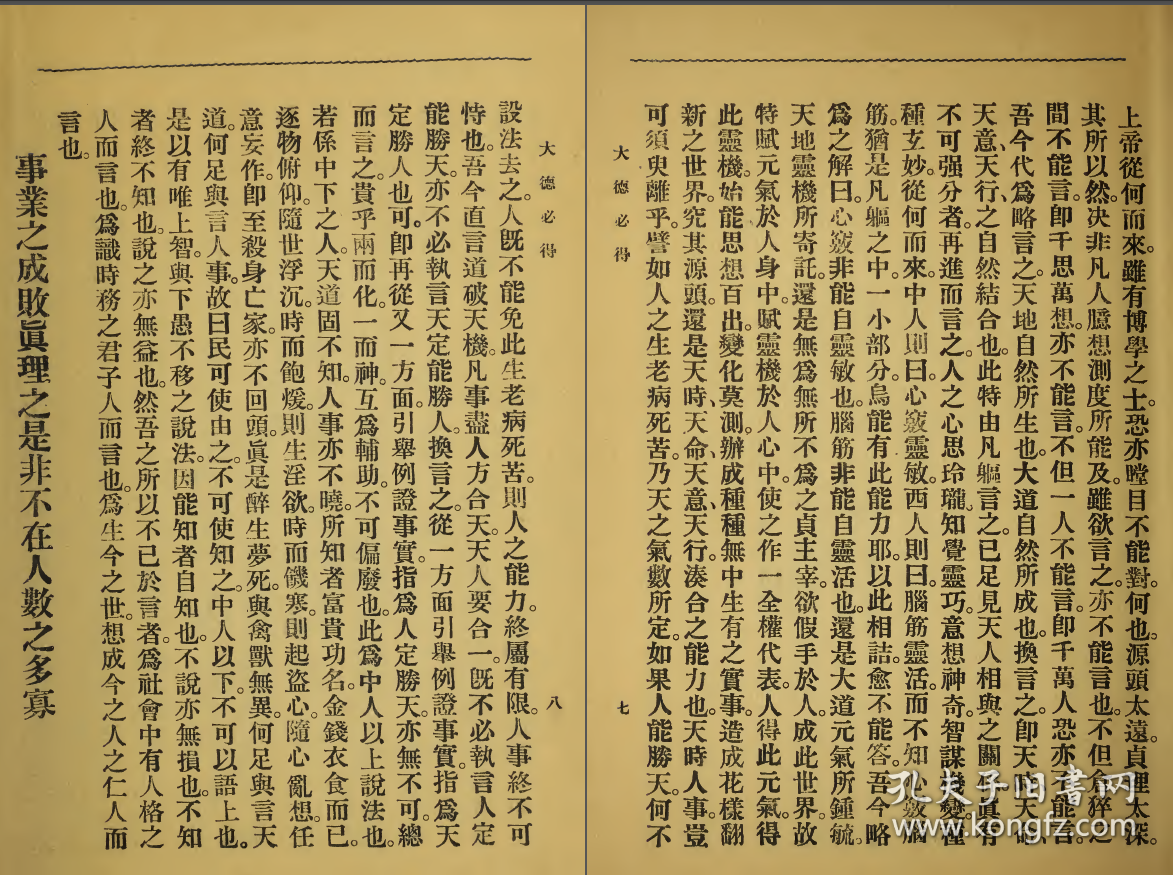 上帝從何而來。雖有博學之士恐亦瞠目不能對。何也。源頭太遠。貞理太深。
其所以然。決非凡人臆想測度所能及。雖欲言之。亦不能言也。不但
間不能言。卽千思萬想。亦不能言。不但一人不能言。卽千萬人恐亦不能言。
吾今代爲略言之。天地自然所生也。大道自然所成也。換言之。卽天時天命、
天意、天行、之自然結合也。此特由凡軀言之。已足見天人相與之關
不可强分者。再進而言之。人之心思玲瓏。知覺靈巧。意想神奇。智謀機變。種
種玄妙。從何而來。中人則曰。心竅靈敏。西人則曰。腦筋靈活。而不知心竅腦
筋。猶是凡軀之中。一小部分。烏能有此能力耶。以此相詰。愈不能答。吾今略
爲之解曰。心竅非能自靈敏也。腦筋非能自靈活也。還是大道元氣所鍾毓。
天地靈機所寄託。還是無爲無所不爲之貞主宰。欲假手於人。成此世界。故
特賦元氣於人身中。賦靈機於人心中。使之作一全權代表。人得此元氣。得
此靈機。始能思想百出。變化莫測。辦成種種無中生有之實事。造成花樣翻
新之世界。究其源頭。還是天時、天命、天意、天行。湊合之能力也。天時人事。豈
可須臾離乎。譬如人之生老病死苦。乃天之氣數所定。如果人能勝天。何不
大德必得
七
大德必得
八
設法去之。人旣不能免此生老病死苦。則人之能力。終屬有限。人事終不可
恃也。吾今直言道破天機。凡事盡人方合天。天人要合一。旣不必執言人定
能勝天。亦不必執言天定能勝人。換言之。從一方面引舉例證事實。指爲天
定勝人也可。卽再從又一方面引舉例證事實。指爲人定勝天。亦無不可。總
而言之。貴乎兩而化。一而神。互爲輔助。不可偏廢也。此爲中人以上說法也。
若係中下之人。天道固不知。人事亦不曉。所知者富貴功名。金錢衣食而已。
逐物俯仰。隨世浮沉。時而飽煖。則生淫欲。時而饑寒。則起盜心。隨心亂想。任
意妄作。卽至殺身亡家。亦不回頭。眞是醉生夢死。與禽獸無異。何足與言天
道。何足與言人事。故曰民可使由之。不可使知之。中人以下。不可以語上也。
是以有唯上智。與下愚不移之說法。因能知者自知也。不說亦無損也。不知
者終不知也。說之亦無益也。然吾之所以不已於言者。爲社會中有人格之
人而言也。爲識時務之君子人而言也。爲生今之世。想成今之人之仁人而
言也。
事業之成敗眞理之是非不在人數之多寡
孔夫子旧书网
www.kongfz.com